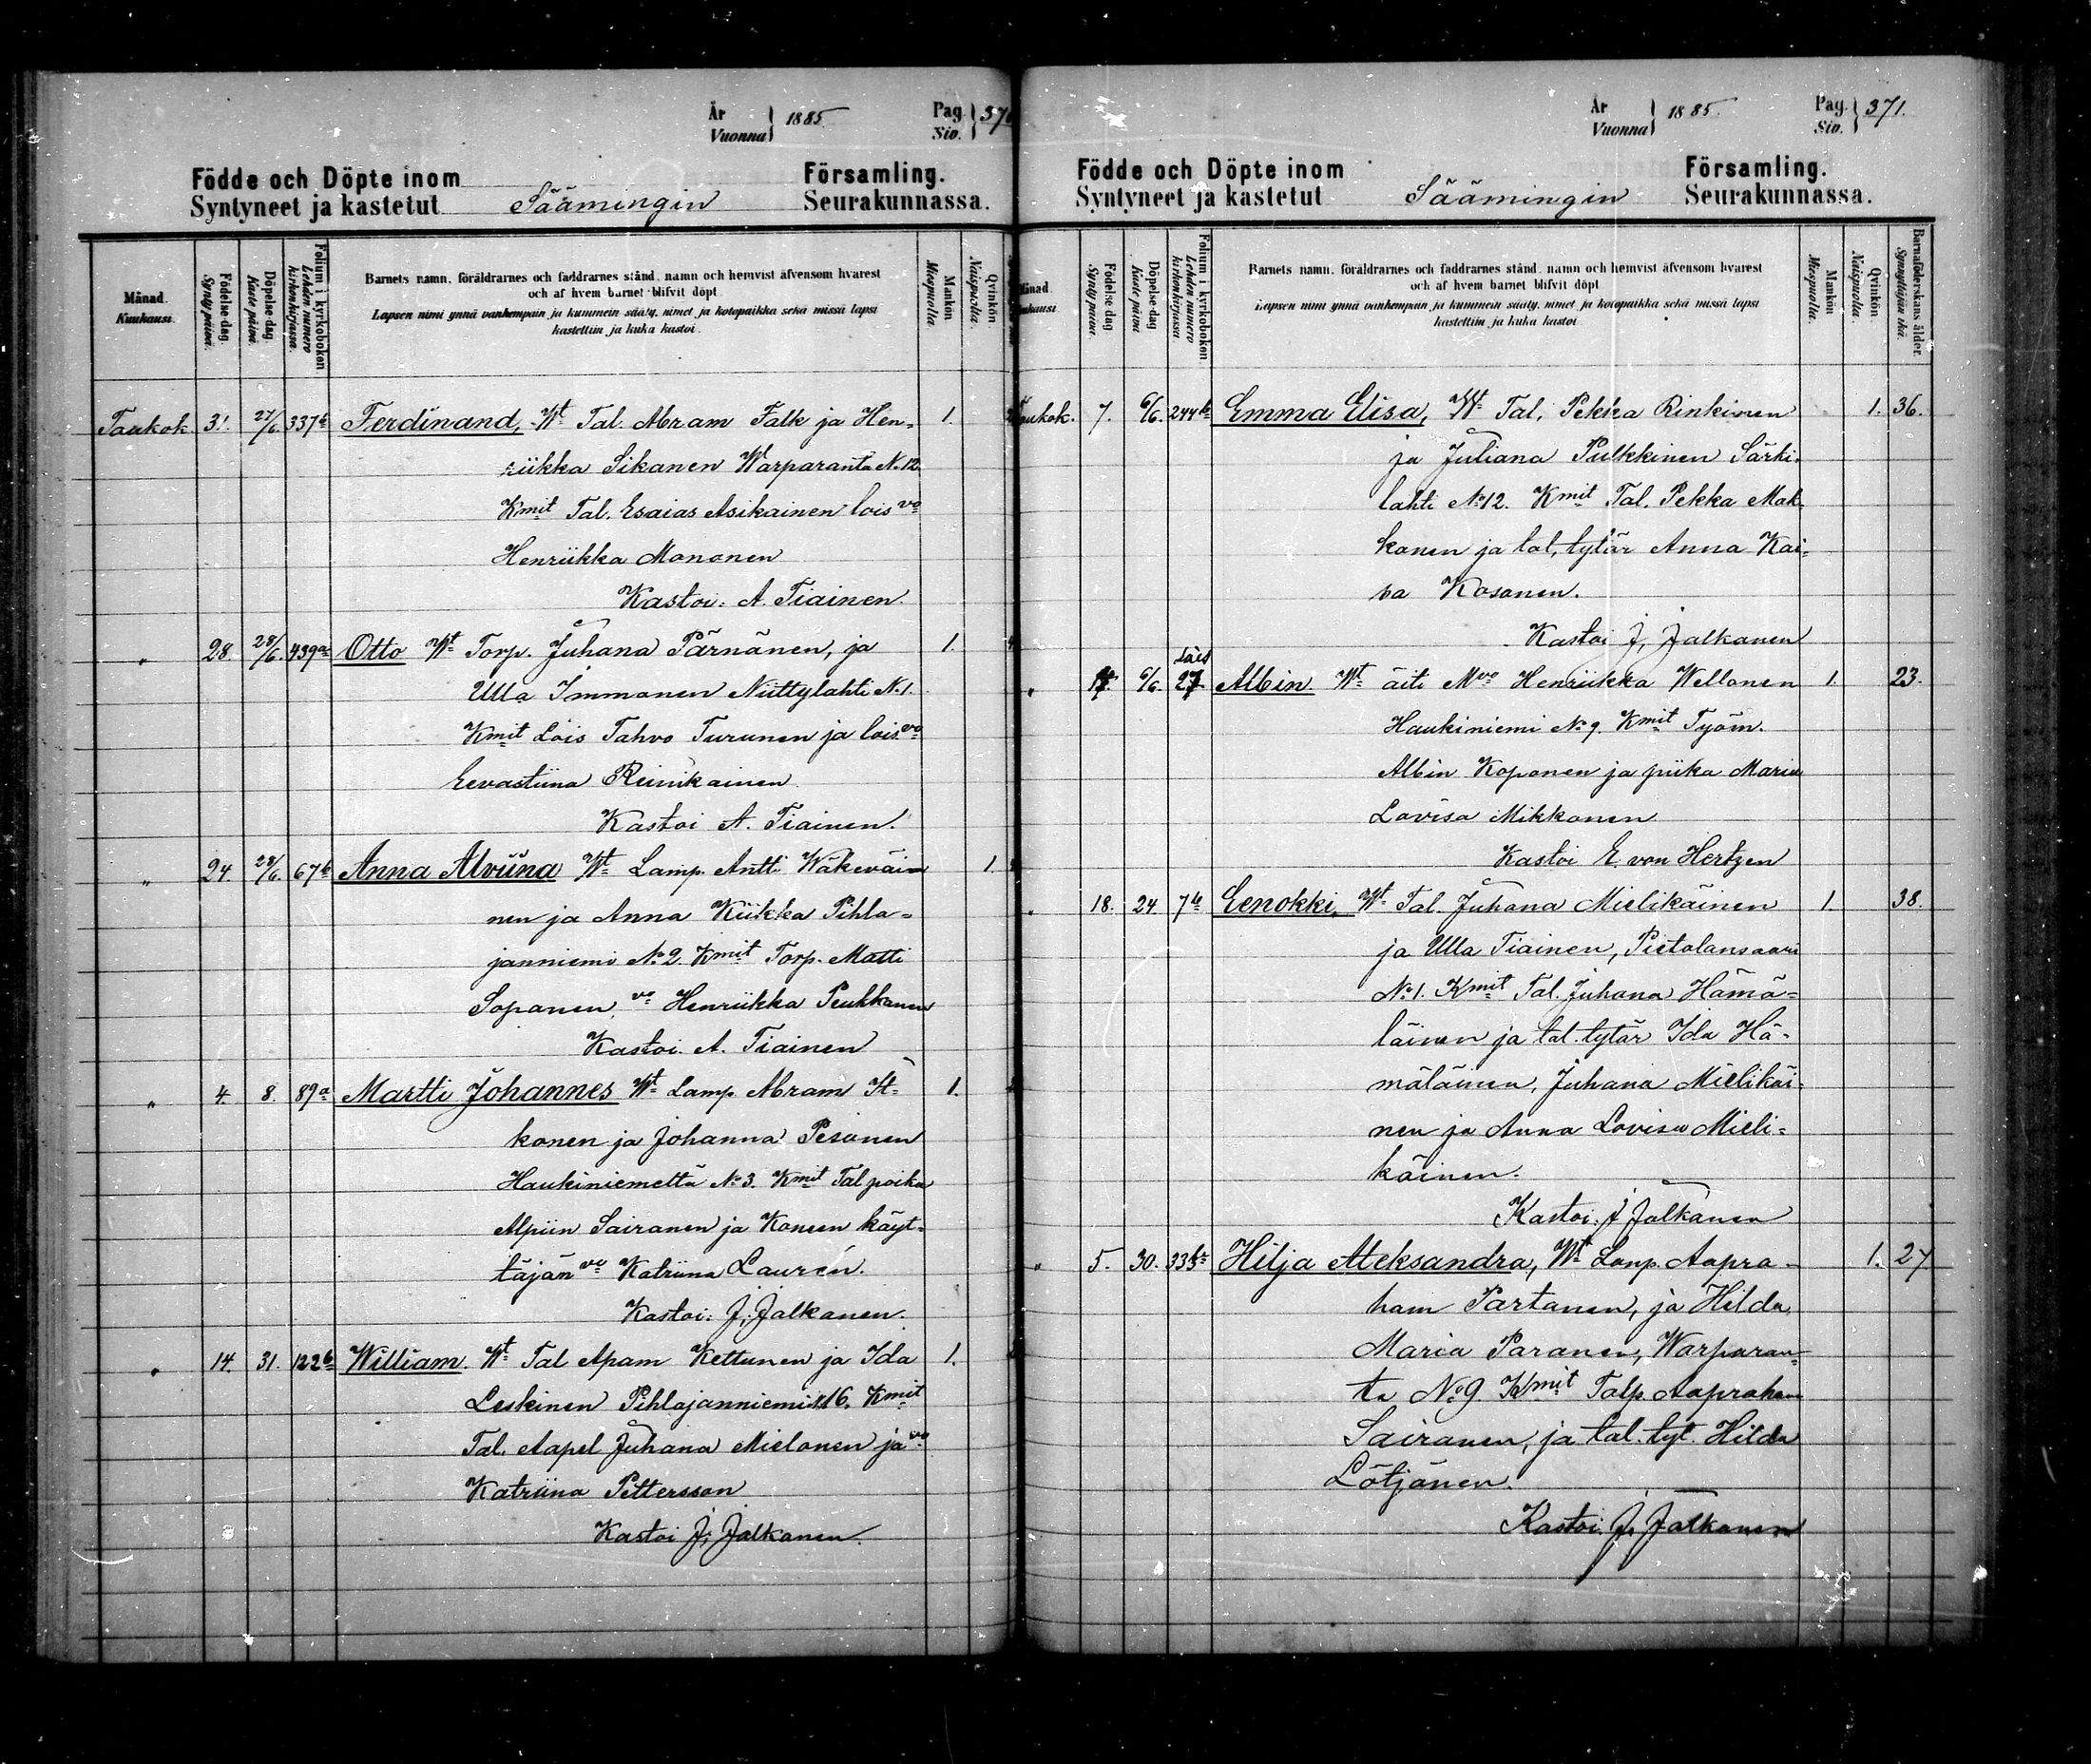 År
Vuonna } 1885.
Pag.
Siv. } 370
Födde och Döpte inom Församling.
Syntyneet ja kastetut Säämingin Seurakunnassa.
Månad.
Kuukausi.
Födelse-dag.
Syntypäivä.
Döpelse-dag
Kaste päivä.
Folium i kyrkobokon
Lehden numero
kirkonkirjassa.
Barnets namn, föräldrarnes och faddrarnes stånd, namn och hemvist äfvensom hvarest
och af hvem barnet blifvit döpt
Lapsen nimi ynnä vanhempain ja kummein sääty, nimet ja kotopaikka sekä missä lapsi
kastettiin ja kuka kastoi.
Mankön
Miespuolia
Qvinkön.
Naispuolia.
Toukok. 31. 27/6. 337b Ferdinand, Wt Tal. Abram Falk ja Hen= 1.
riikka Sikanen Warparanta No 12
Kmit Tal. Esaias Asikainen lois vo
Henriikka Mononen
Kastoi: A. Tiainen.
" 28. 28/6. 439a Otto Wt Torp. Juhana Pärnänen, ja 1.
Ulla Immonen Niittylahti No 1.
Kmit Lois Tahvo Turunen ja lois. vo
Eevastiina Reinikainen
Kastoi A. Tiainen.
" 24. 28/6. 67b Anna Alviina Wt Lamp. Antti Wäkeväi= 1.
nen ja Anna Kiikka Pihla=
janniemi No 2. Kmit Torp. Matti
Sopanen, vo Henriikka Peukkanen
Kastoi. A. Tiainen
" 4. 8. 89a Martti Johannes Wt Lamp. Abram It= 1.
konen ja Johanna Pesonen
Haukiniemeltä No 3. Kmit Tal poika
Alpiin Sairanen ja Koneen käyt=
täjän vo Katriina Laurén.
Kastoi: J. Jalkanen.
" 14. 31. 122b William. Wt Tal Apam Kettunen ja Ida 1.
Leskinen Pihlajanniemi No 16. Kmit
Tal. Aapel Juhana Mielonen ja vo
Katriina Pettersson
Kastoi J. Jalkanen.
År
Vuonna } 1885.
Pag.
Siv. } 371.
Födde och Döpte inom Församling.
Syntyneet ja kastetut Säämingin Seurakunnassa.
Månad.
Kuukausi.
Födelse-dag
Syntypäivä.
Döpelse-dag
Kaste päivä
Folium i kyrkobokon
Lehden numero
kirkonkirjassa
Barnets namn, föräldrarnes och faddrarnes stånd, namn och hemvist äfvensom hvarest
och af hvem barnet blifvit döpt
Lapsen nimi ynnä vanhempain ja kummein sääty, nimet ja kotopaikka sekä missä lapsi
kastettiin ja kuka kastoi
Mankön
Miespuolia.
Qvinkön.
Naispuolia.
Barnaföderskans ålder.
Synnyttäjän ikä.
Toukok. 7. 6/6. 244b Emma Elisa, Wt Tal. Pekka Rinkinen 1. 36.
ja Juliana Pulkkinen Särki=
lahti No 12. Kmit Tal. Pekka Mak=
konen ja tal. tytär Anna Kai=
sa Kosonen.
Kastoi J. Jalkanen
" 17. 6/6. 27 Albin. Wt äiti Mvo Henriikka Wellonen 1. 23.
Haukiniemi No 9. Kmit Työm.
Albin Koponen ja piika Maria
Lovisa Mikkonen
Kastoi E. von Hertzen
" 18. 24. 7b Eenokki. Wt Tal. Juhana Mielikäinen 1. 38.
ja Ulla Tiainen, Pietolansaari
No 1. Kmit Tal. Juhana Hämä=
läinen ja tal. tytär Ida Hä=
mäläinen, Juhana Mielikäi=
nen ja Anna Lovisa Mieli=
käinen.
Kastoi. J Jalkanen
" 5. 30. Hilja Aleksandra, Wt Lamp. Aapra= 1. 27
ham Partanen, ja Hilda
Maria Paranen, Warparan=
ta No 9. Kmit Talp. Aapraham
Sairanen, ja tal. tyt. Hilda
Lötjönen.
Kastoi. J. Jalkanen